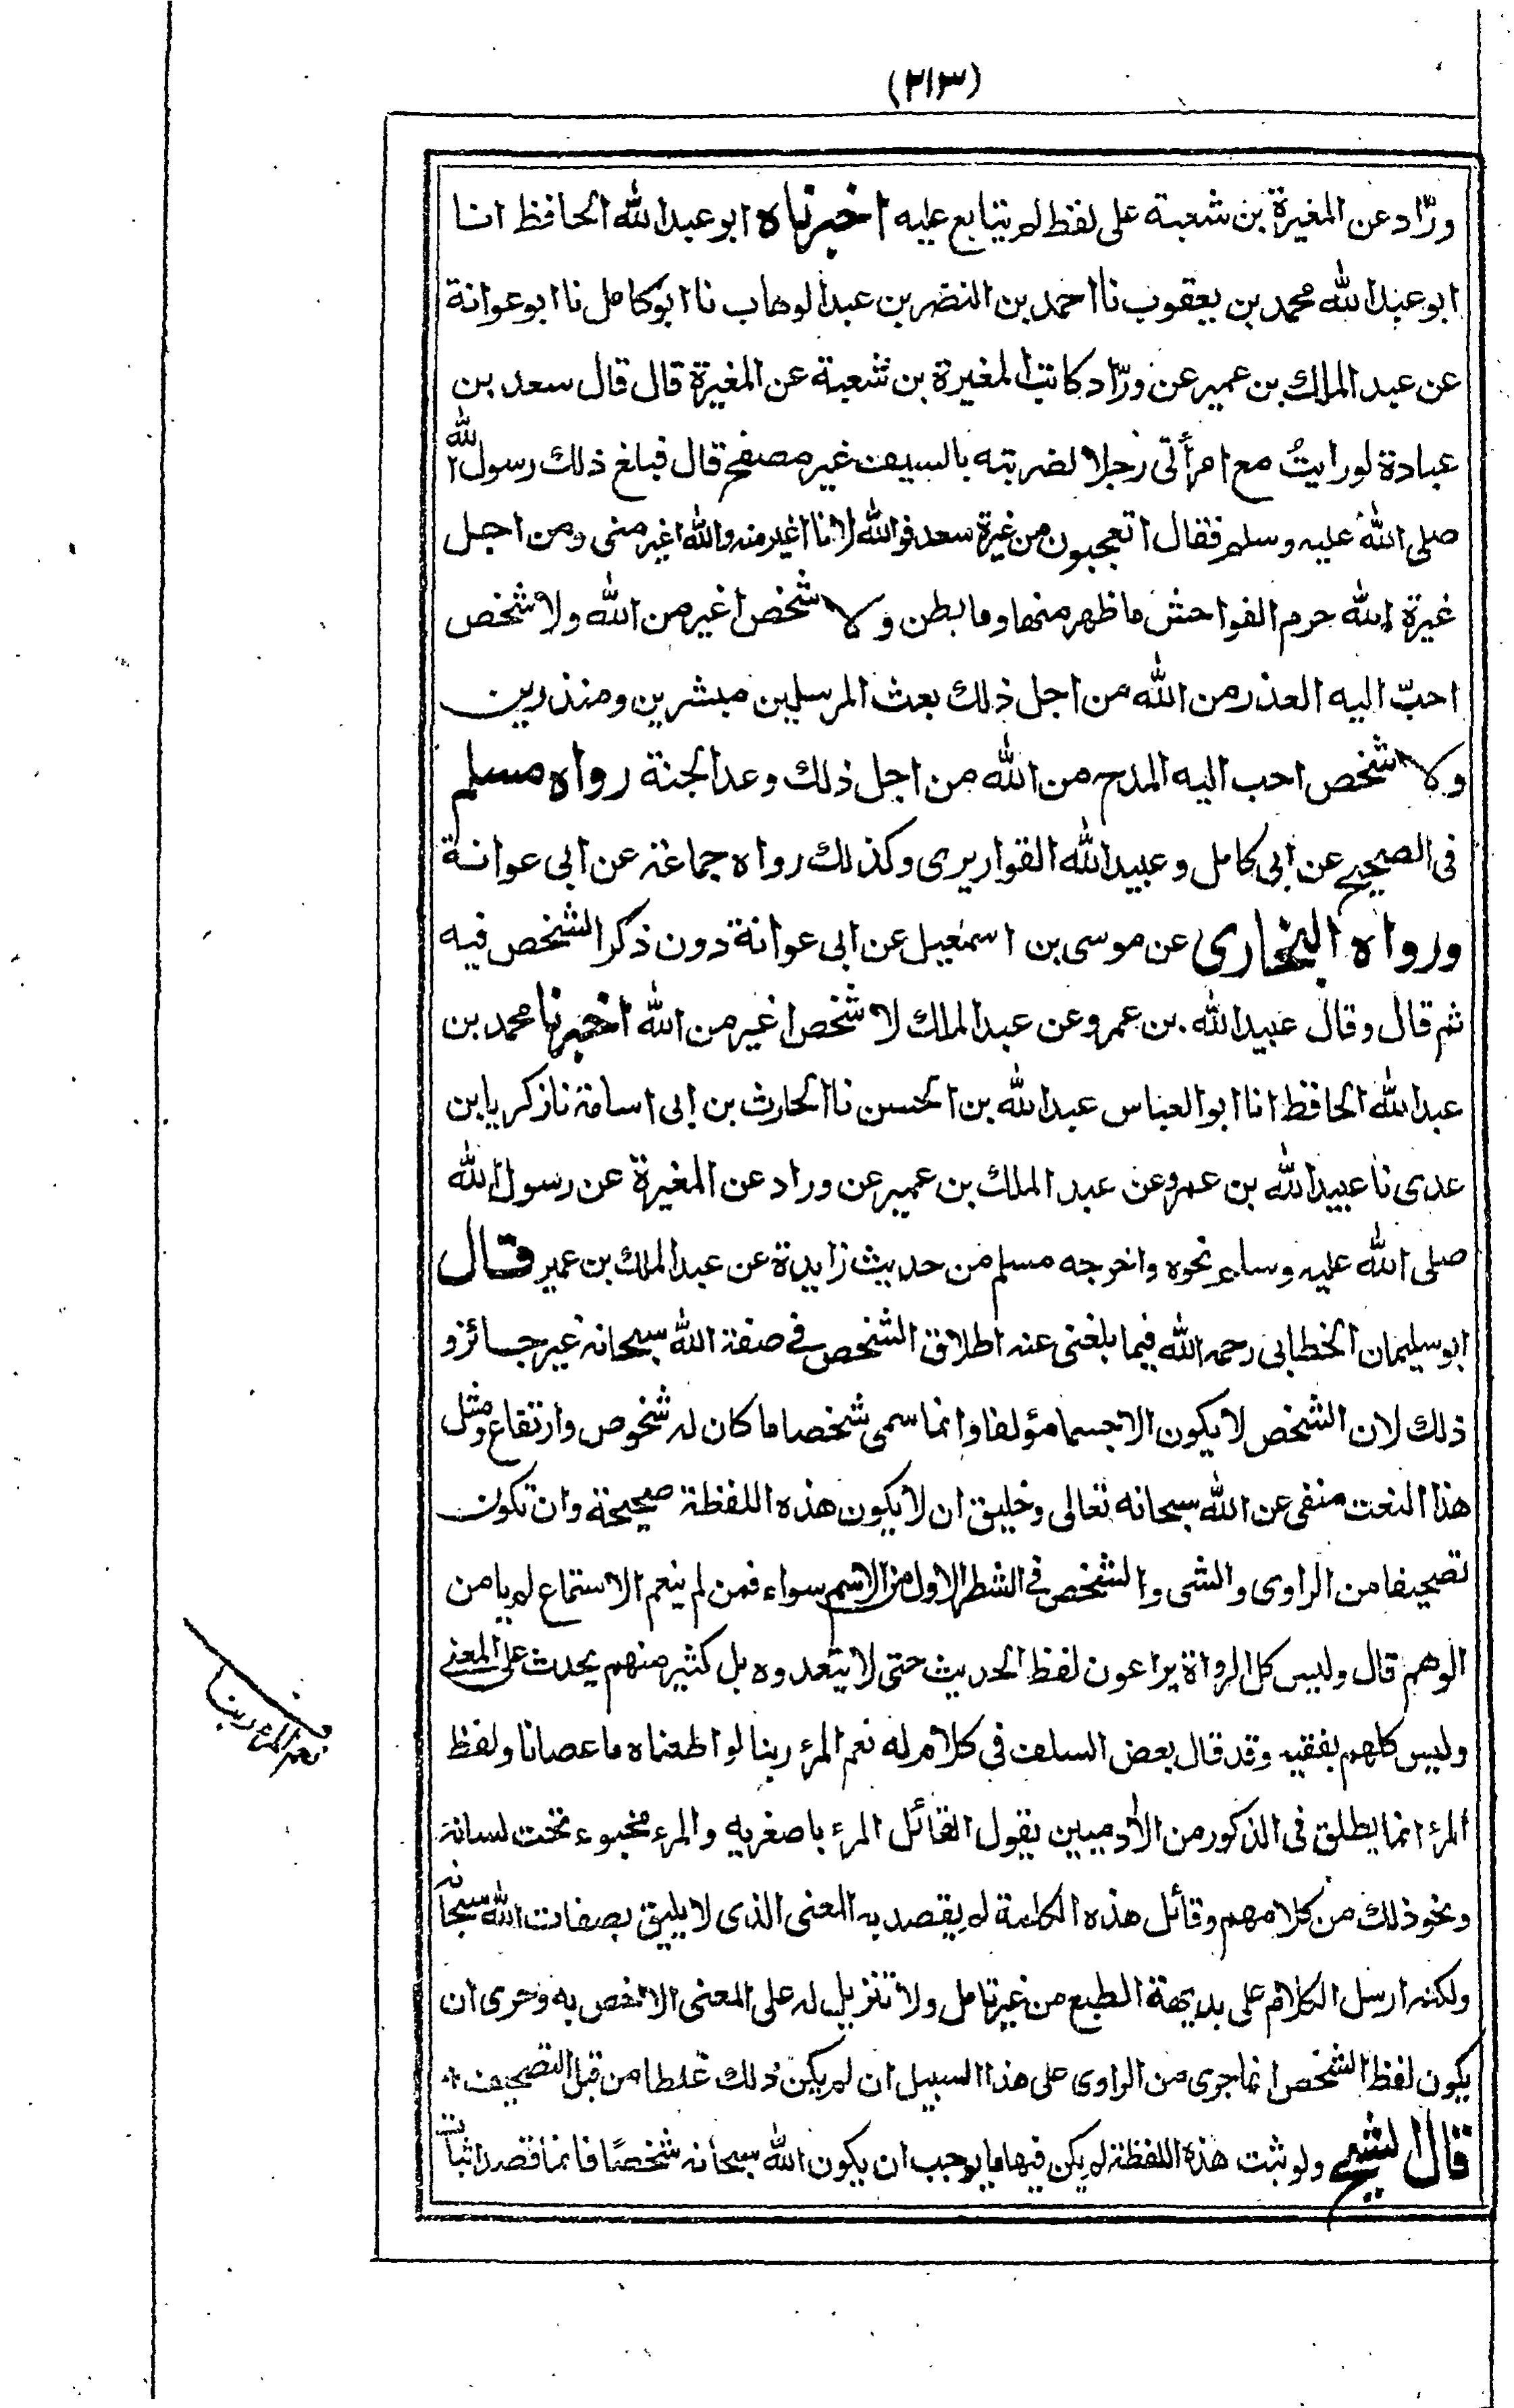 (٢١٣)
ورّاد عن المغيرة بن شعبة على لفظ لم يتابع عليه اخبرناه ابو عبد الله الحافظ انا
ابو عبد الله محمد بن يعقوب نا احمد بن النضر بن عبد الوهاب نا ابو كامل نا ابو عوانة
عن عبد الملك بن عمير عن ورّاد كاتب المغيرة بن شعبة عن المغيرة قال قال سعد بن
عبادة لو رايتُ مع امرأتى رجلا لضربته بالسيف غير مصفح قال فبلغ ذلك رسول الله
صلى الله عليه وسلم فقال اتعجبون من غيرة سعد فوالله لانا اغير منه والله اغير منى ومن اجل
غيرة الله حرم الفواحش ما ظهر منها وما بطن ولا شخص اغير من الله ولا شخص
احبّ اليه العذر من الله من اجل ذلك بعث المرسلين مبشرين ومنذرين
ولا شخص احب اليه المدح من الله من اجل ذلك وعد الجنة رواه مسلم
فى الصحيح عن ابى كامل وعبيد الله القواريرى وكذلك رواه جماعة عن ابى عوانة
ورواه البخارى عن موسى بن اسمعيل عن ابى عوانة دون ذكر الشخص فيه
ثم قال وقال عبيد الله بن عمرو عن عبد الملك لا شخص اغير من الله اخبرنا محمد بن
عبد الله الحافظ انا ابو العباس عبد الله بن الحسن نا الحارث بن ابى اسامة نا زكريا بن
عدى نا عبيد الله بن عمرو عن عبد الملك بن عمير عن وراد عن المغيرة عن رسول الله
صلى الله عليه وسلم نحوه واخرجه مسلم من حديث زايدة عن عبد الملك بن عمير قال
ابو سليمان الخطابى رحمه الله فيما بلغنى عنه اطلاق الشخص فى صفة الله سبحانه غير جائز و
ذلك لان الشخص لا يكون الا جسما مؤلفا وانما سمى شخصا ما كان له شخوص وارتفاع ومثل
هذا النعت منفى عن الله سبحانه تعالى وخليق ان لا يكون هذه اللفظة صحيحة وان تكون
تصحيفا من الراوى والشى والشخص فى الشطر الاول من الاسم سواء فمن لم ينعم الاستماع لم يامن
الوهم قال وليس كل الرواة يراعون لفظ الحديث حتى لا يتعدوه بل كثير منهم يحدث على المعنى
وليس كلهم بفقيه وقد قال بعض السلف فى كلام له نعم المرء ربنا لو اطعناه ما عصانا ولفظ
المرء انما يطلق فى الذكور من الآدميين يقول القائل المرء باصغريه والمرء مخبوء تحت لسانه
ونحو ذلك من كلامهم وقائل هذه الكلمة لم يقصد به المعنى الذى لا يليق بصفات الله سبحانه
ولكنه ارسل الكلام على بديهة الطبع من غير تامل ولا تنزيل له على المعنى الاخص به وحرى ان
يكون لفظ الشخص انما جرى من الراوى على هذا السبيل ان لم يكن ذلك غلطا من قبل التصحيف *
قال الشيخ ولو ثبت هذه اللفظة لم يكن فيها ما يوجب ان يكون الله سبحانه شخصًا فانما قصد اثبات
نعم المرء ربنا